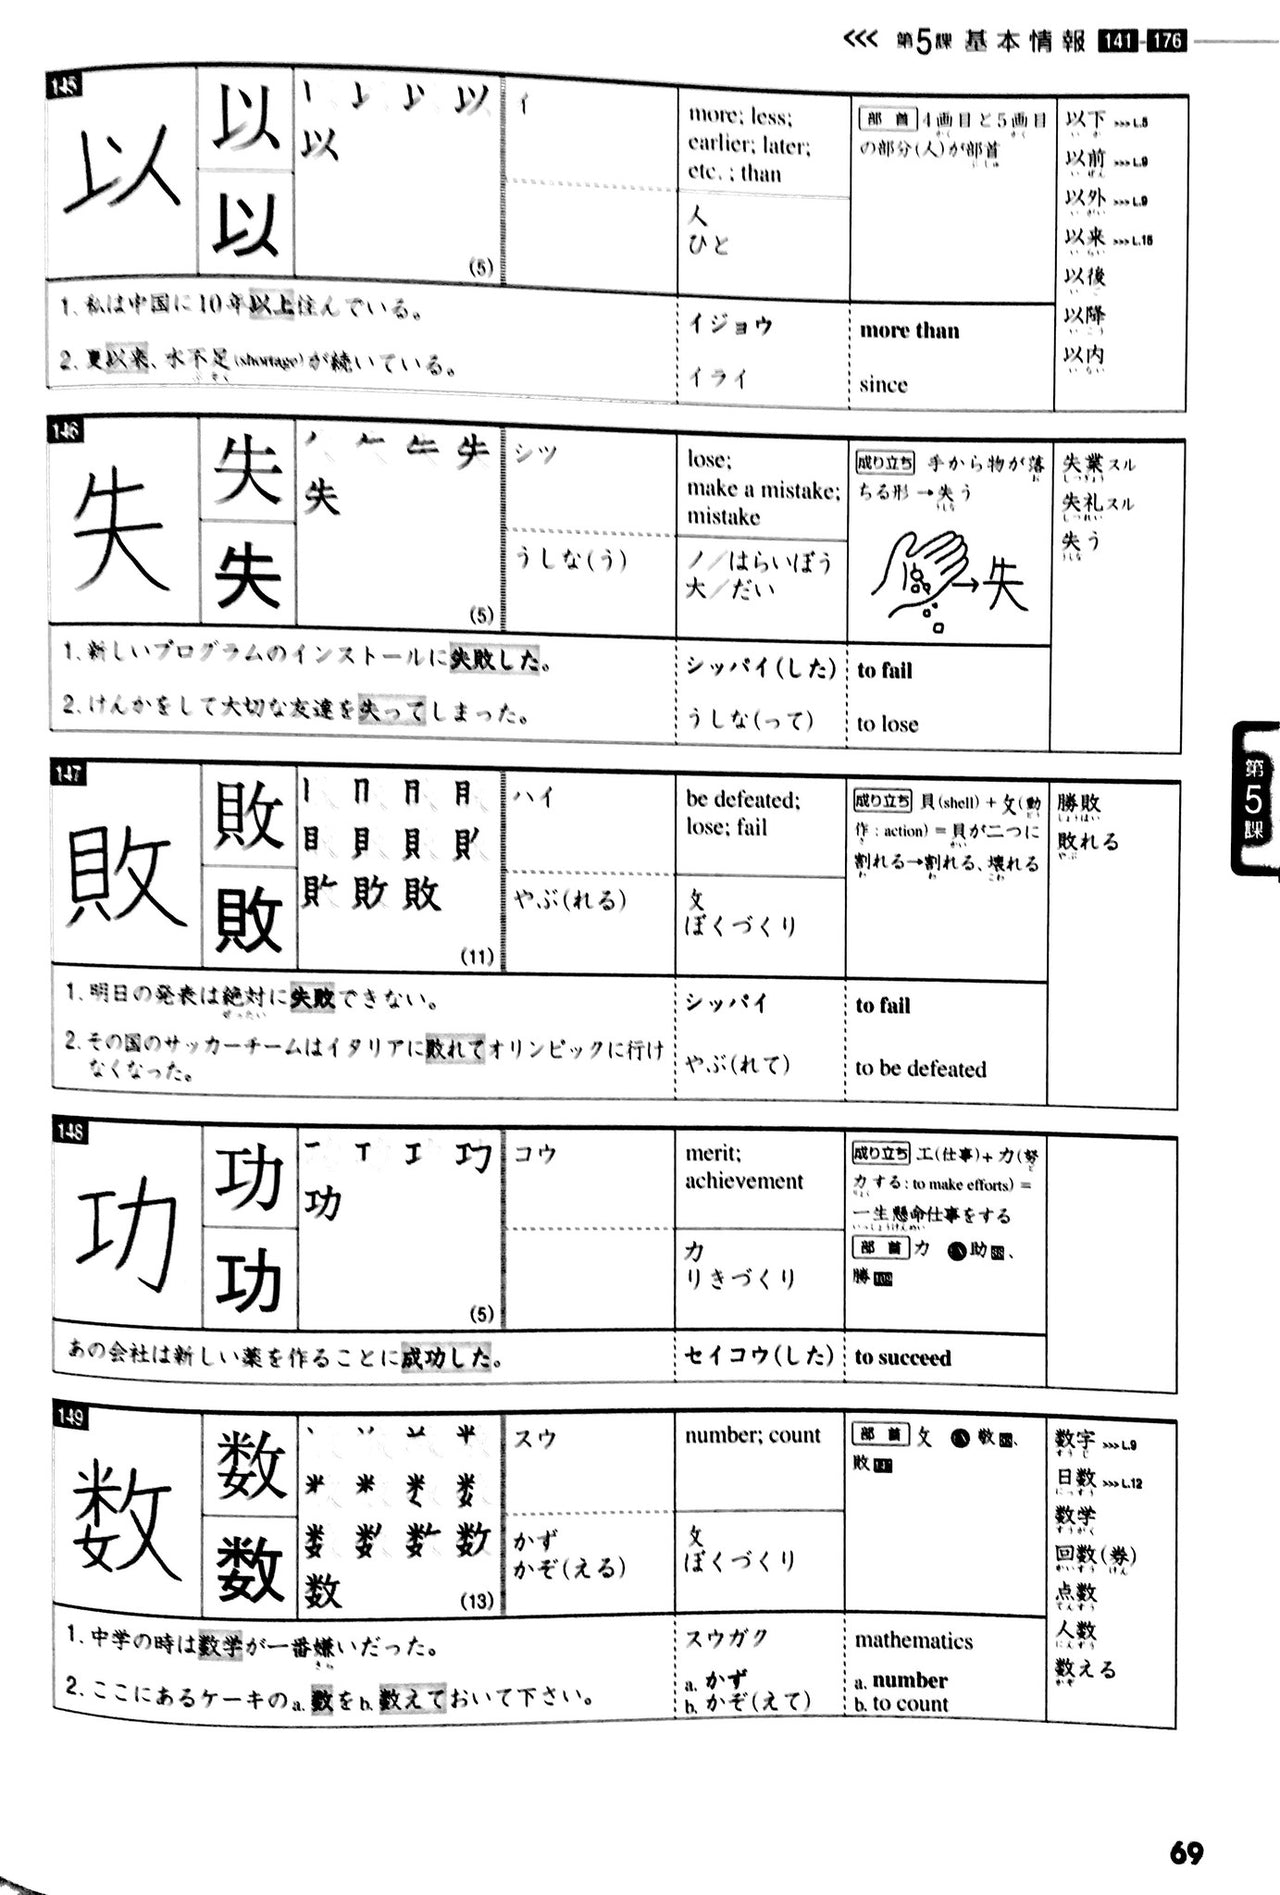 <<< 第5課 基本情報 141-176
145
以
以
以
以
(5)
イ
more; less;
earlier; later;
etc. ; than
人
ひと
部首 4画目と5画目
の部分(人)が部首
以下 >>>L.8
いか
以前 >>>L.9
いぜん
以外 >>>L.9
いがい
以来 >>>L.15
いらい
以後
いご
以降
いこう
以内
いない
1. 私は中国に10年以上住んでいる。
イジョウ
more than
2. 夏以来、水不足(shortage)が続いている。
イライ
since
146
失
失
失
失
失
(5)
シツ
うしな(う)
lose;
make a mistake;
mistake
ノ/はらいぼう
大/だい
成り立ち 手から物が落
ちる形→失う
失
失業スル
しつぎょう
失礼スル
しつれい
失う
うしな
1. 新しいプログラムのインストールに失敗した。
シッパイ(した)
to fail
2. けんかをして大切な友達を失ってしまった。
うしな(って)
to lose
147
敗
敗
敗
敗
(11)
ハイ
やぶ(れる)
be defeated;
lose; fail
攵
ぼくづくり
成り立ち 貝(shell) + 攵(動
作 : action) = 貝が二つに
割れる→割れる、壊れる
勝敗
しょうはい
敗れる
やぶ
1. 明日の発表は絶対に失敗できない。
ぜったい
シッパイ
to fail
2. その国のサッカーチームはイタリアに敗れてオリンピックに行け
なくなった。
やぶ(れて)
to be defeated
148
功
功
功
功
(5)
コウ
merit;
achievement
力
りきづくり
成り立ち 工(仕事)+ 力(努
力する: to make efforts) =
一生懸命仕事をする
いっしょうけんめい
部首 力 助
勝
あの会社は新しい薬を作ることに成功した。
セイコウ(した)
to succeed
149
数
数
数
数
(13)
スウ
かず
かぞ(える)
number; count
攵
ぼくづくり
部首 攵
敗
数字 >>>L.9
すうじ
日数 >>>L.12
にっすう
数学
すうがく
回数(券)
かいすう けん
点数
てんすう
人数
にんずう
数える
かぞ
1. 中学の時は数学が一番嫌いだった。
きら
スウガク
mathematics
2. ここにあるケーキのa.数をb.数えておいて下さい。
a. かず
b. かぞ(えて)
a. number
b. to count
第5課
69